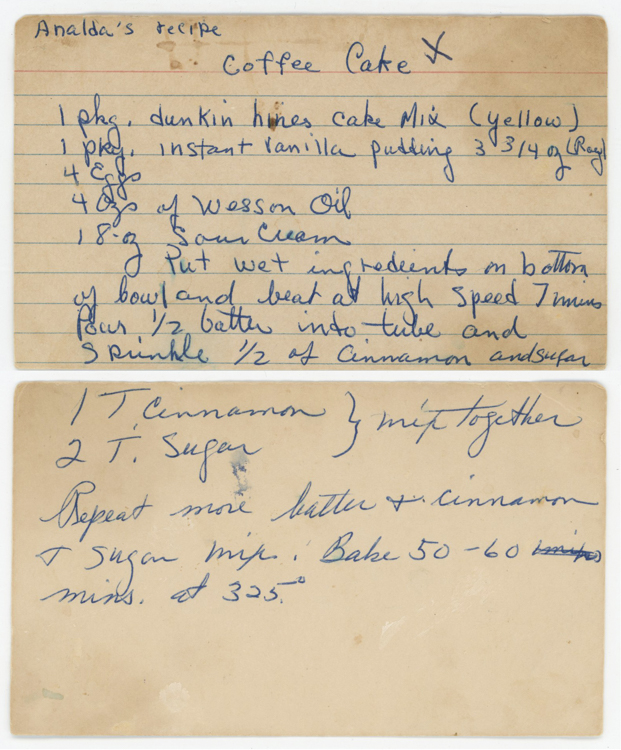 Analda's recipe
Coffee Cake X
1 pkg. dunkin hines cake Mix (yellow)
1 pkg. instant vanilla pudding 3 3/4 oz (Reg)
4 Eggs
4 Ozs of Wesson Oil
1 8-oz Sour Cream
Put wet ingredients on bottom
of bowl and beat at high speed 7 mins
Pour 1/2 batter into tube and
Sprinkle 1/2 of Cinnamon and sugar
1 T. Cinnamon } mix together
2 T. Sugar
Repeat more batter & cinnamon
& sugar mix. Bake 50-60
mins. at 325°.